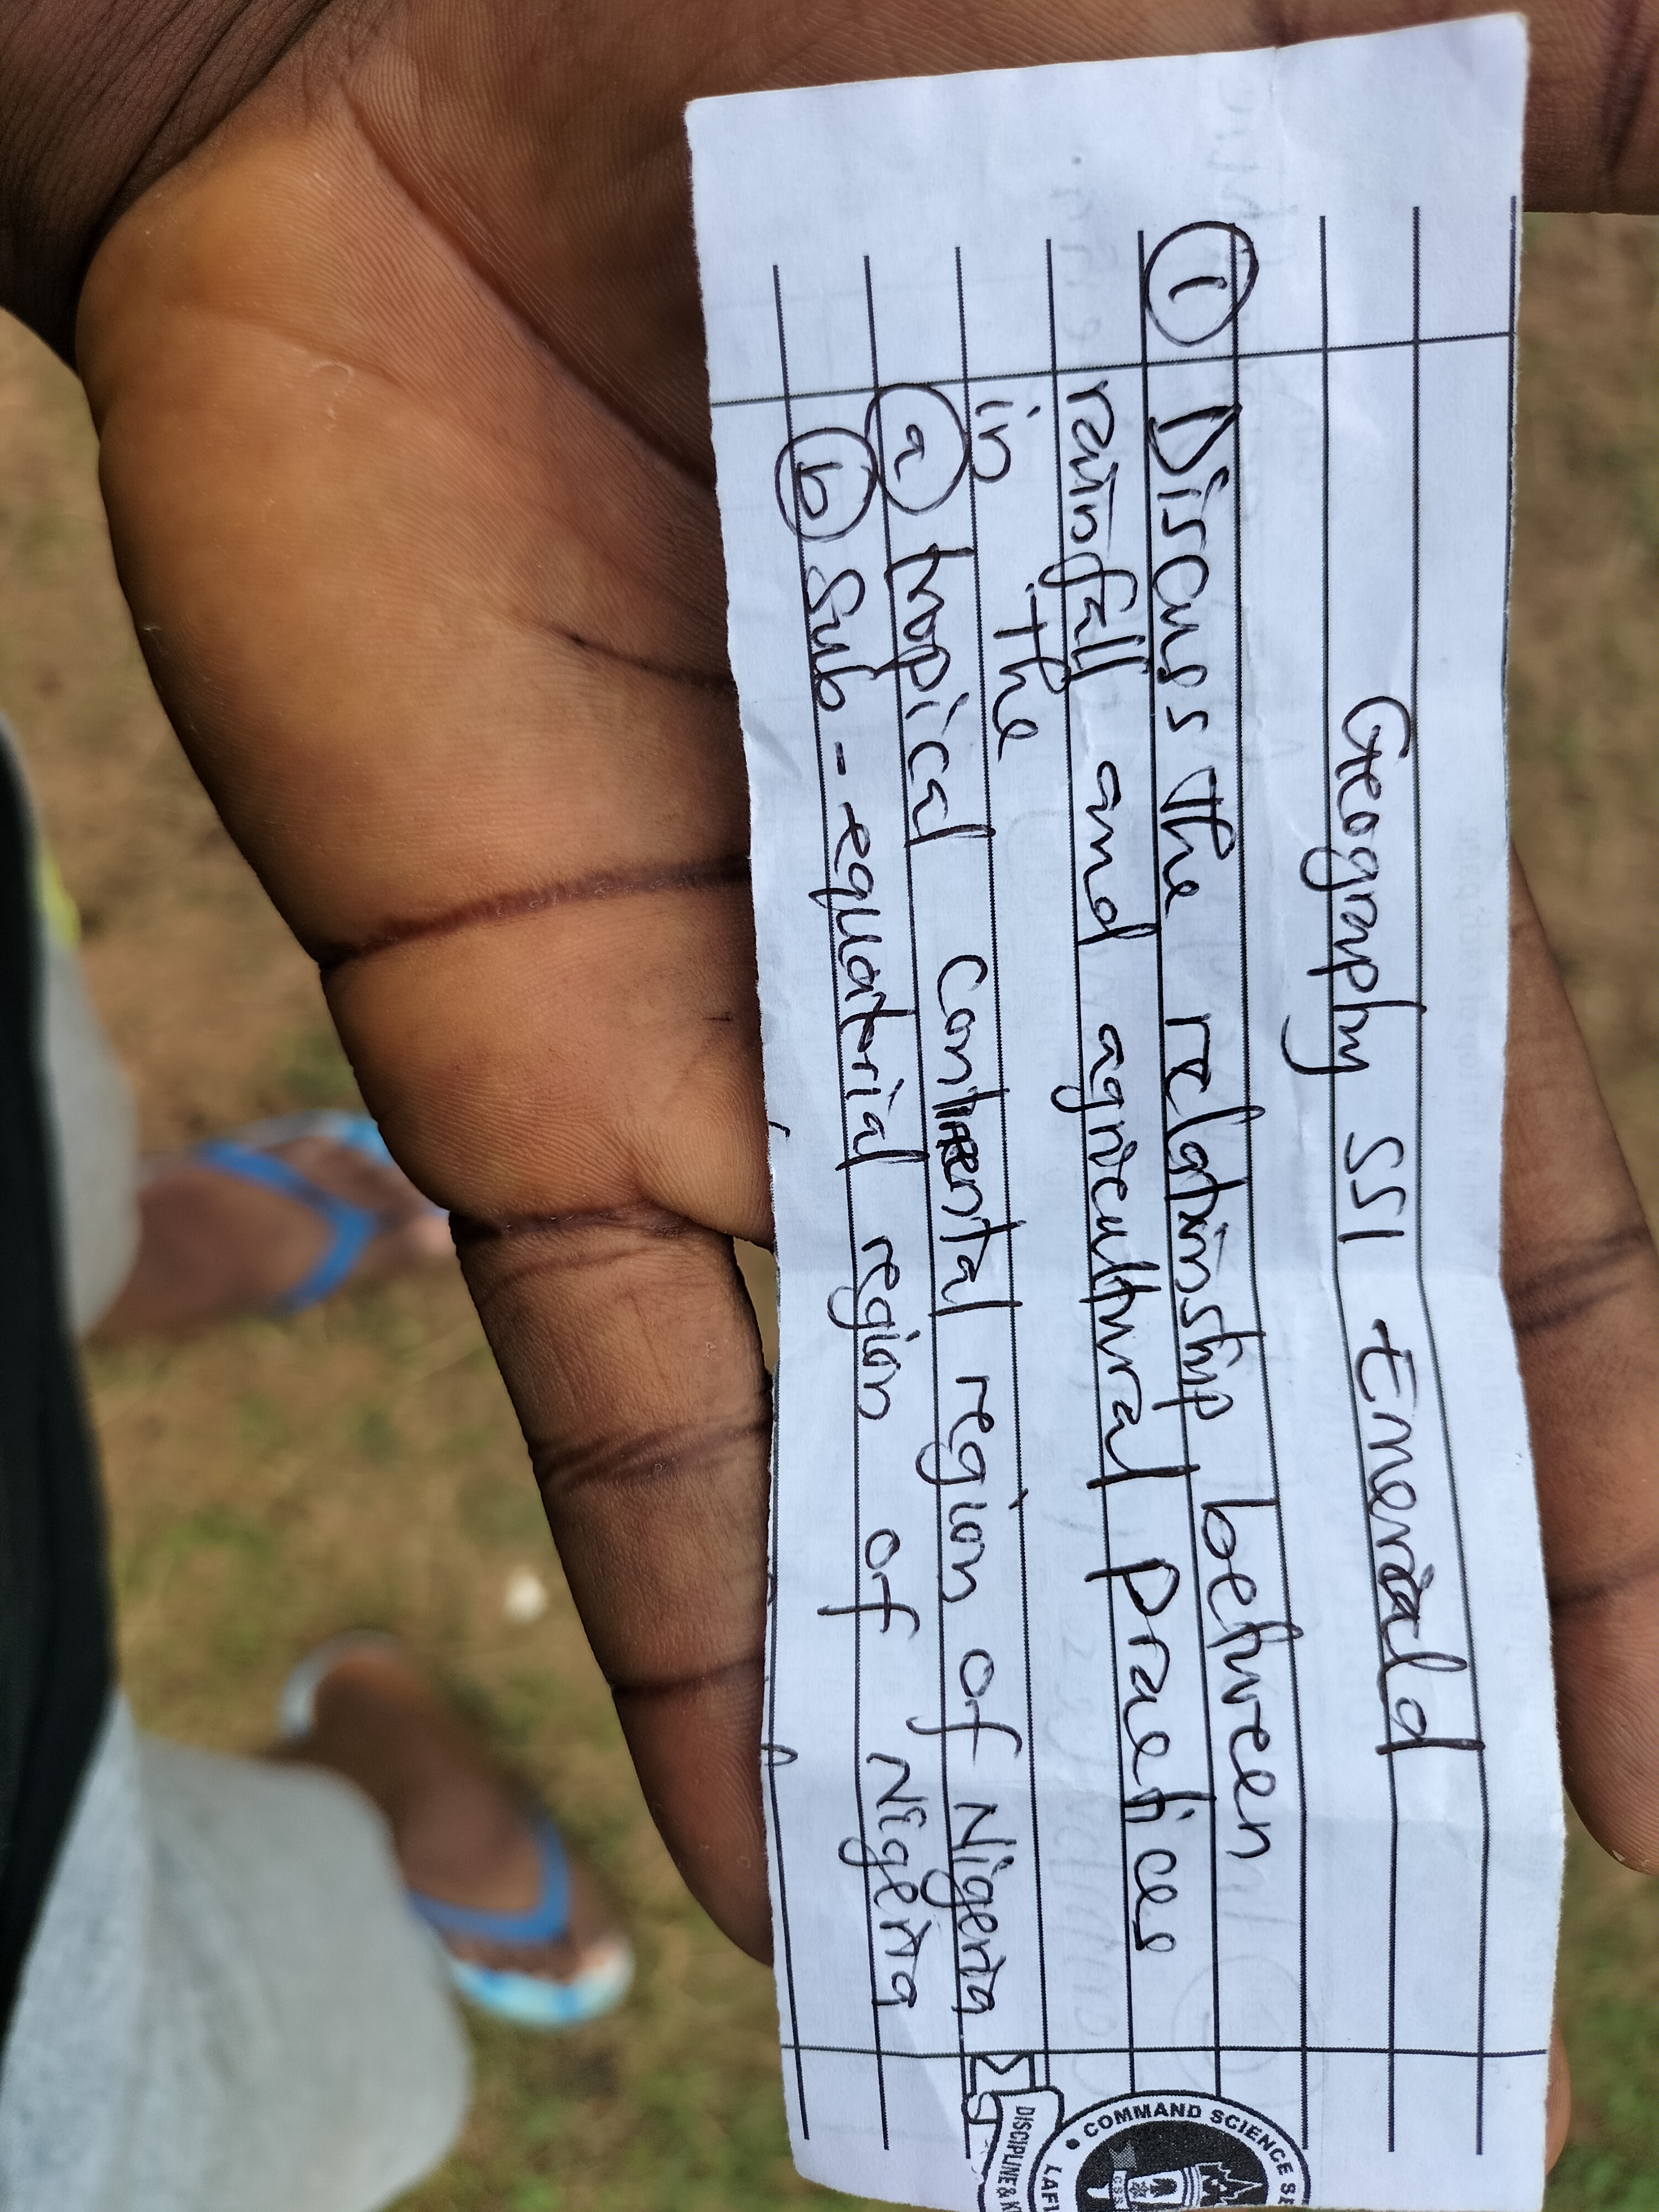 Geography SS1 Emerald
① Discuss the relationship between
rainfall and agricultural practices
in the
ⓐ tropical Continental region of Nigeria
ⓑ Sub-equatorial region of Nigeria
COMMAND SCIENCE SE
LAFI
DISCIPLINE & K